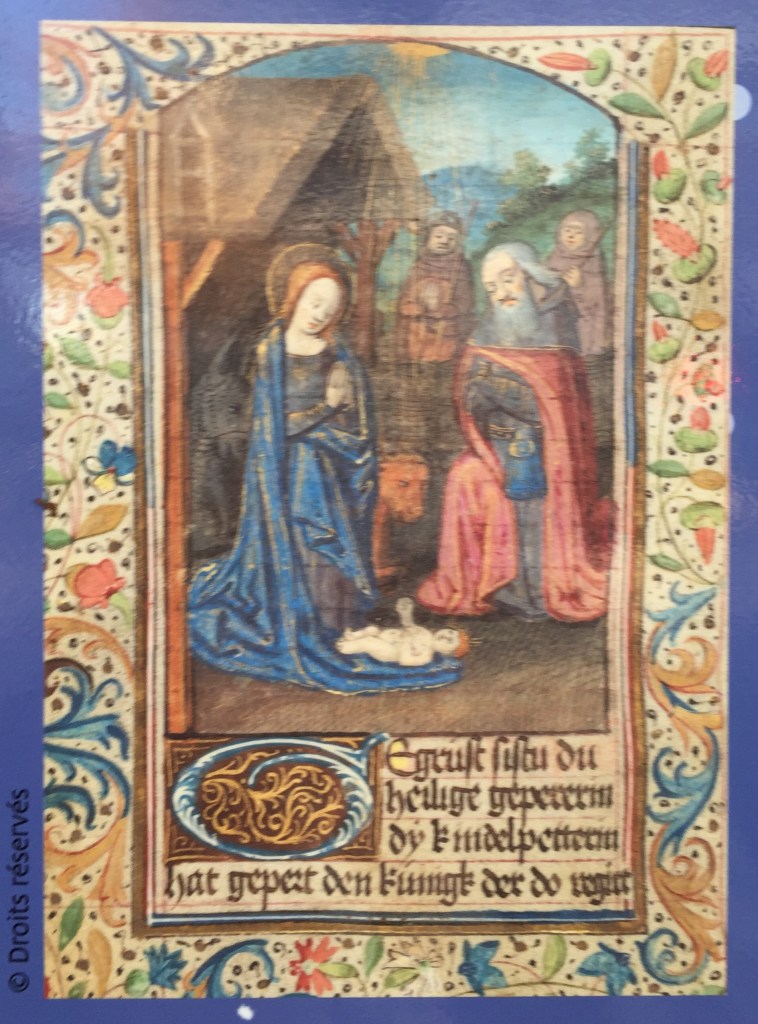 Gegrust sistu du
heilige gepererin
dy kindelpetterin
hat gepert den kunigk der do regirt
© Droits réservés